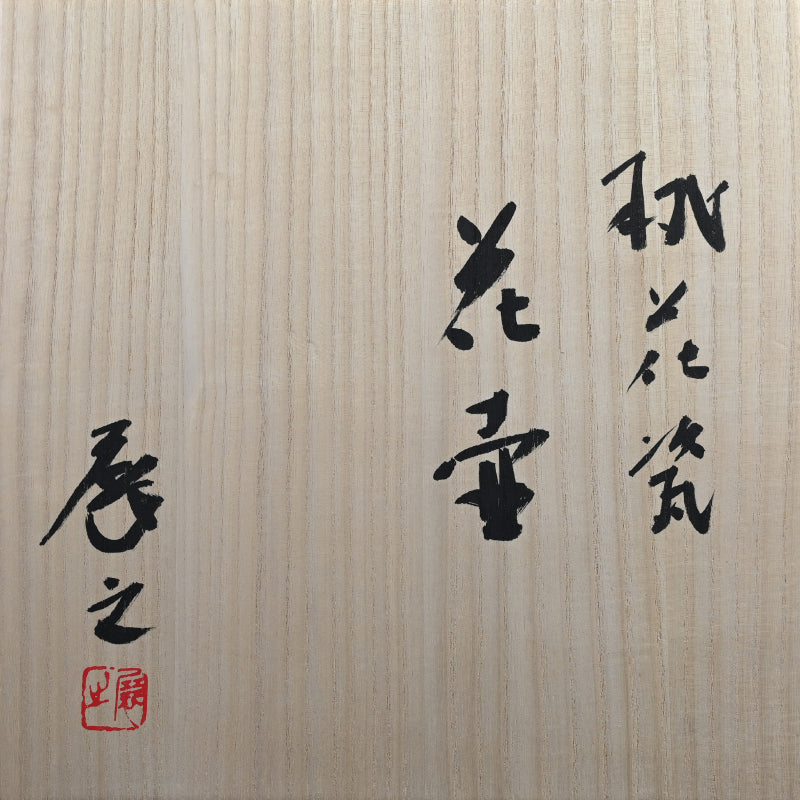 桃花瓷
花壷
展之
展之